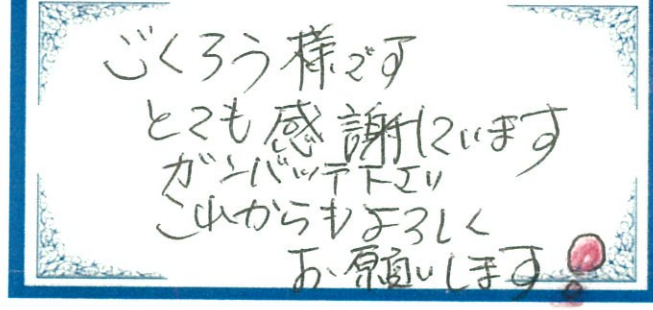 ごくろう様です
とても感謝しています
ガンバッテ下さい
これからもよろしく
お願いします